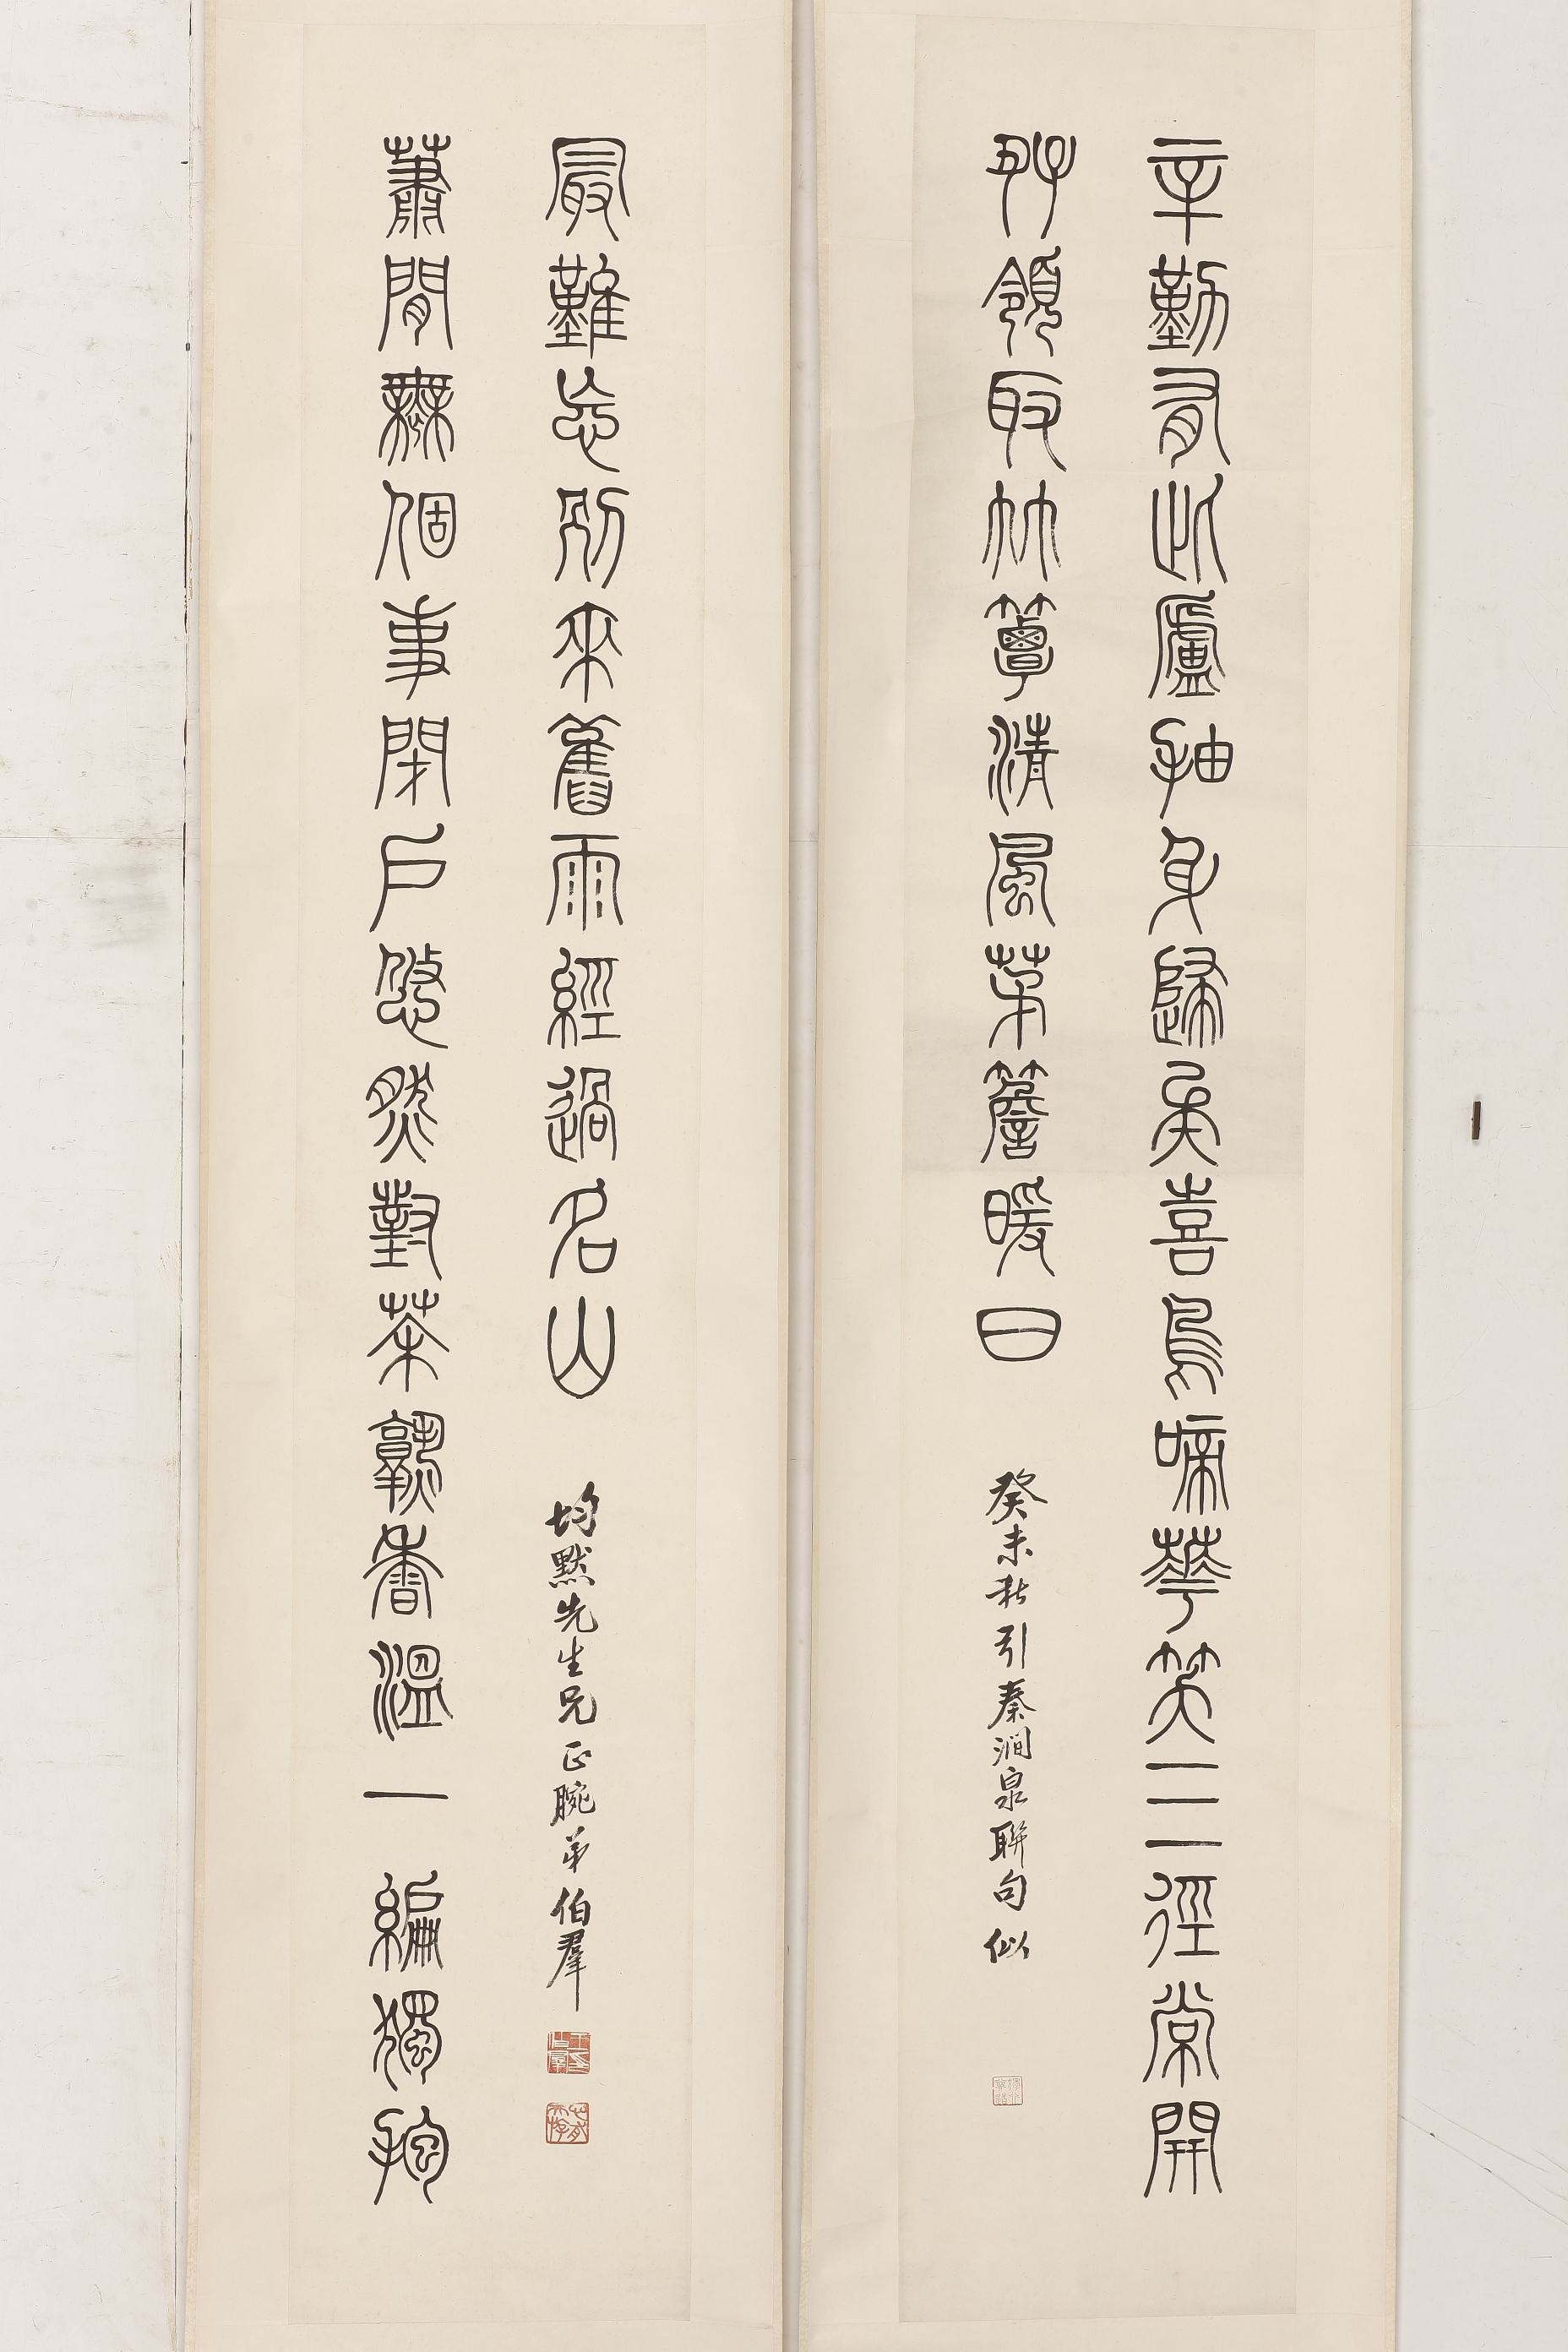 辛勤有此廬抽身歸矣喜鳥啼華笑三徑常開
好領取竹簟清風茅簷暖日
癸未秋引秦澗泉聯句似
蕭閒無個事閉戶悠然對茶熟香溫一編獨抱
最難忘別來舊雨經過名山
均默先生兄正腕弟伯羣